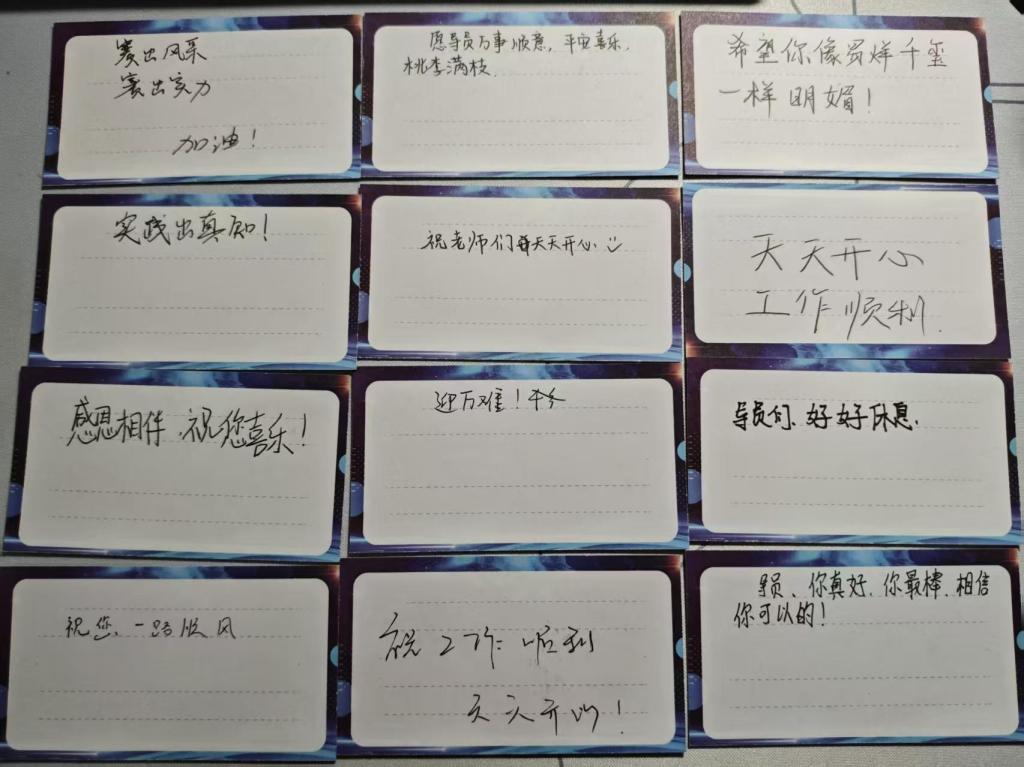 赛出风采
赛出实力
加油！
愿导员万事顺意，平安喜乐，
桃李满枝．
希望你像易烊千玺
一样明媚！
实践出真知！
祝老师们天天开心
天天开心
工作顺利．
感恩相伴．祝您喜乐！
迎万难！
导员们、好好休息．
祝您、一路顺风
祝工作顺利
天天开心！
导员、你真好．你最棒．相信
你可以的！